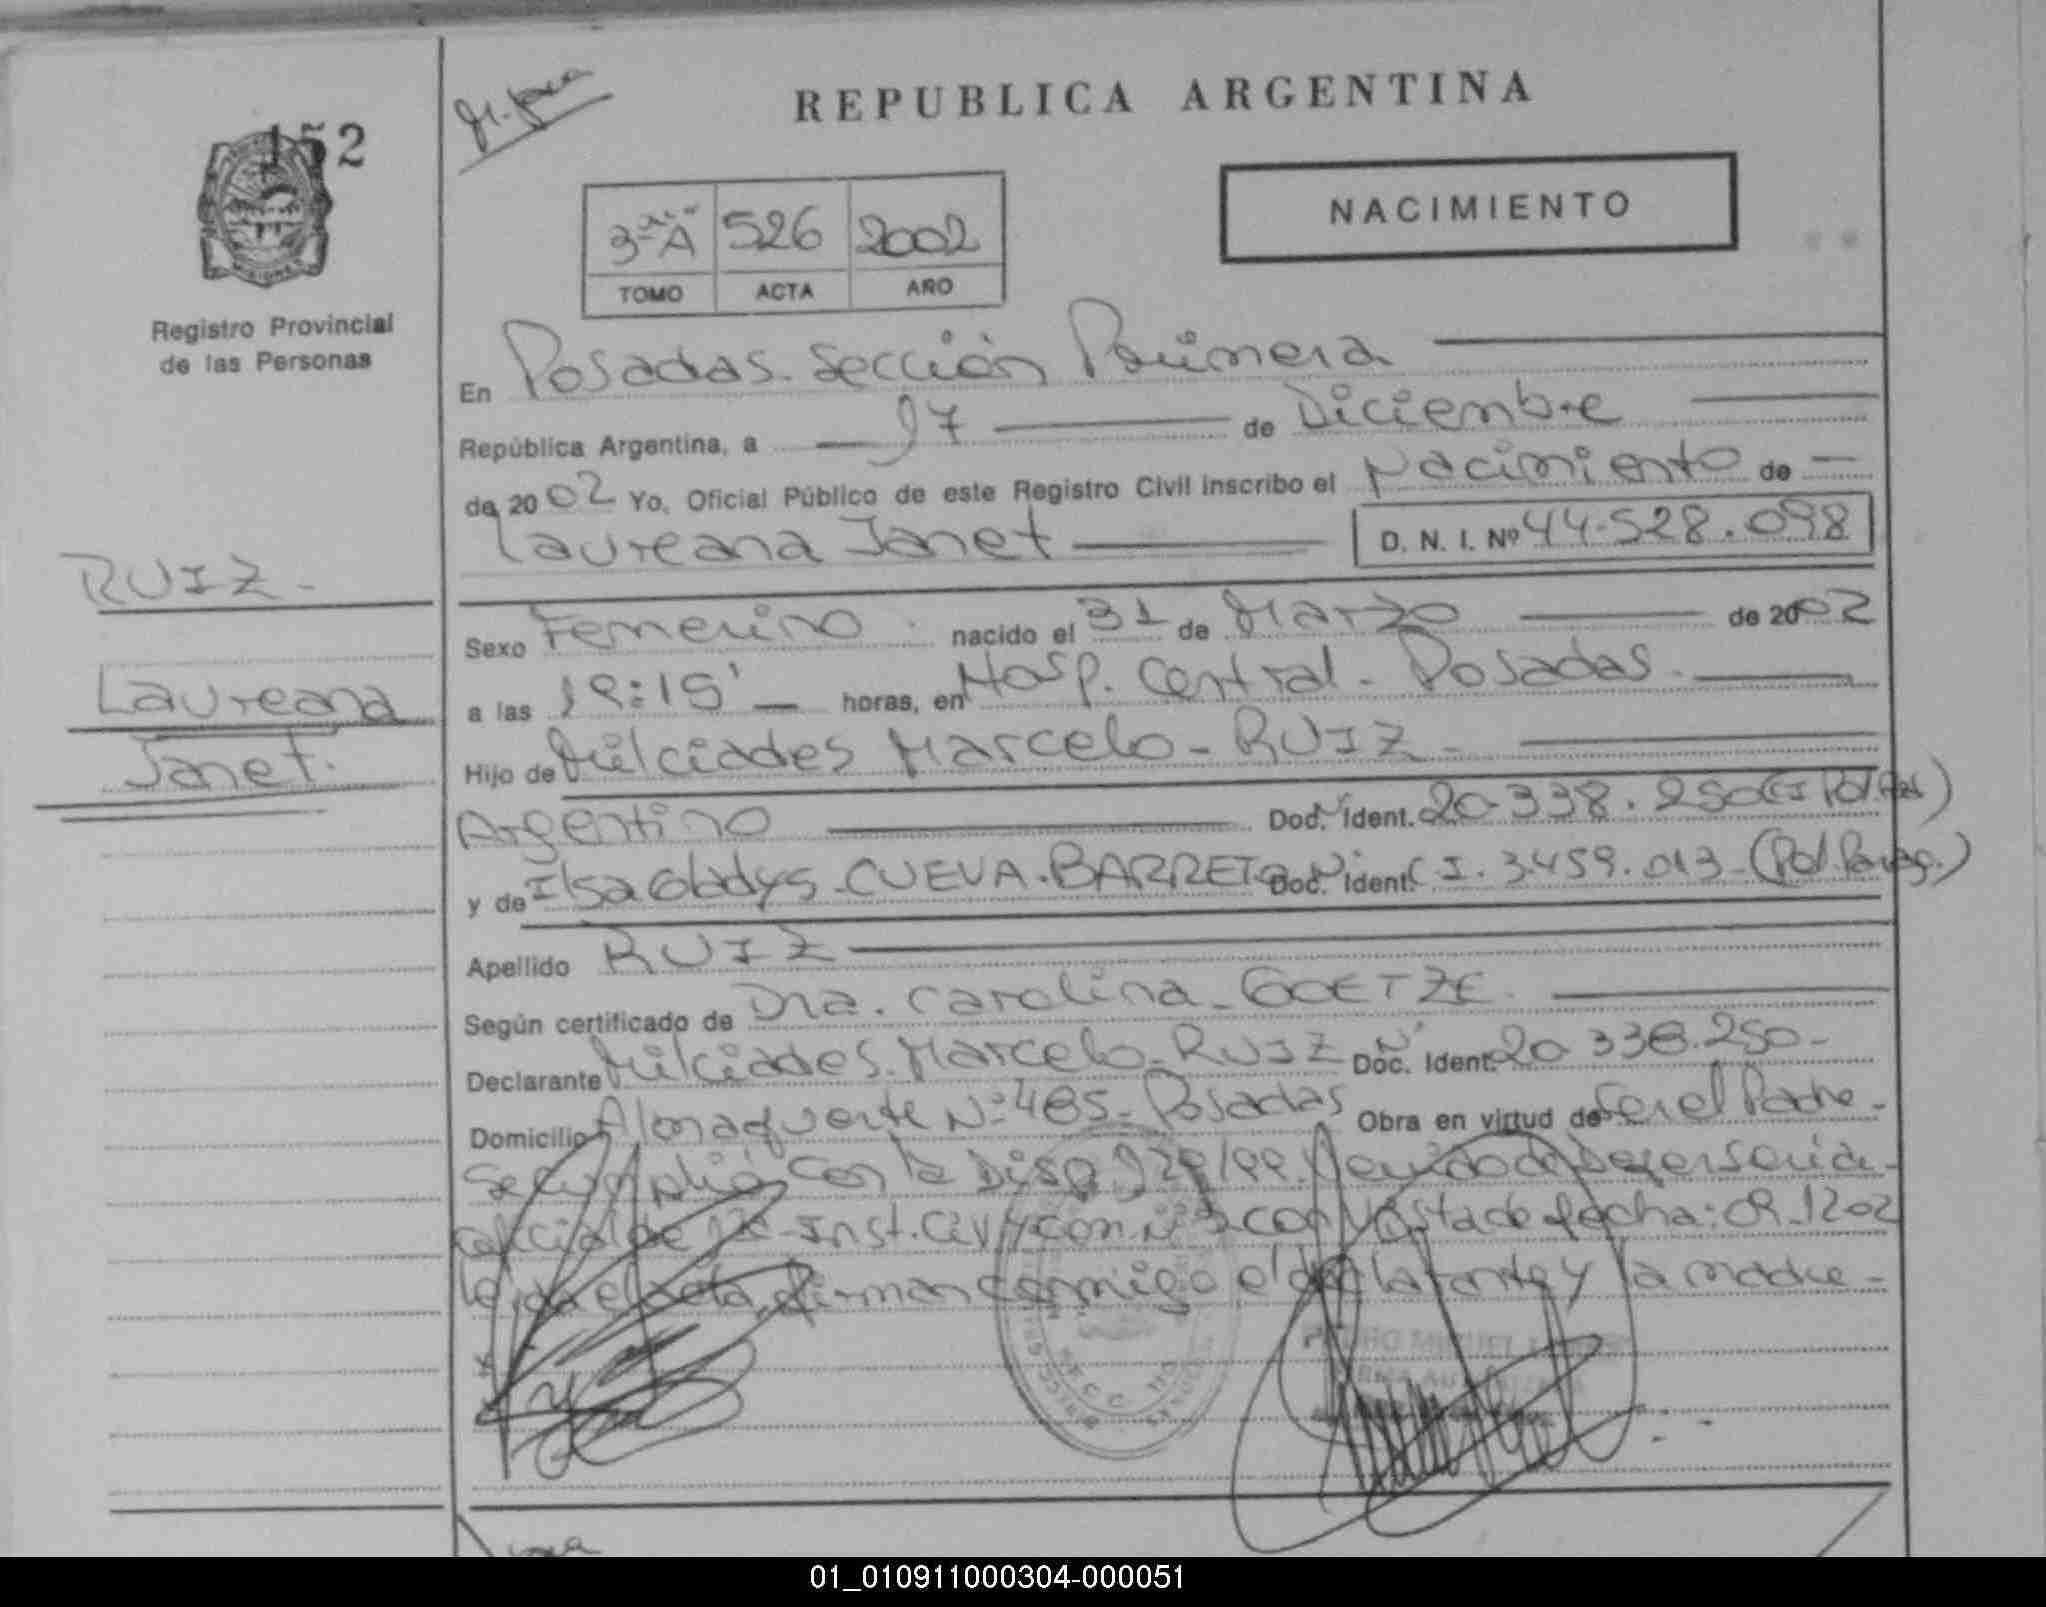 152
REPUBLICA ARGENTINA
NACIMIENTO
3ª A 526 2002
TOMO ACTA AÑO
MISIONES
Registro Provincial
de las Personas
En Posadas - Sección Primera
República Argentina, a 17 de Diciembre
de 2002 Yo, Oficial Público de este Registro Civil inscribo el Nacimiento de
Laureana Janet D. N. I. Nº 44.528.098
RUIZ -
Laureana
Janet.
Sexo Femenino nacido el 31 de Marzo de 2002
a las 19:15' horas, en Hosp. Central - Posadas.
Hijo de Milciades Marcelo - RUIZ -
Argentino Doc. Nº Ident. 20.338.250 (CI Pol. )
y de Ilsa Gladys - CUEVA - BARRETO Doc. Nº Ident. C.I. 3.459.013 - (Pol. Parag.)
Apellido RUIZ
Según certificado de Dra. Carolina - GOETZE.
Declarante Milciades Marcelo - RUIZ Doc. Nº Ident. 20.338.250 -
Domicilio Almafuerte Nº 485 - Posadas Obra en virtud de Ser el Padre -
Se cumplió con la Disp.
oficial de Inst. Civ. y Com. Nº fecha: 09-12-02
Leída el acta, firman conmigo el declarante y la madre -
01_010911000304-000051